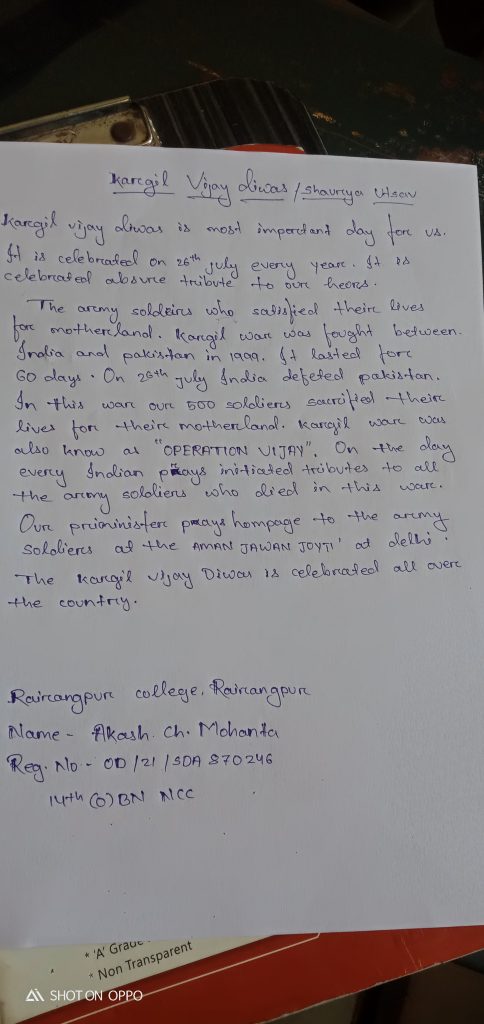 Kargil Vijay diwas / Shaurya Utsav
Kargil vijay diwas is most important day for us.
It is celebrated on 26th july every year. It is
celebrated absvre tribute to our heors.
The army soldeirs who satisfied their lives
for motherland. Kargil war was fought between
India and pakistan in 1999. It lasted for
60 days. On 26th july India defeted pakistan.
In this war our 500 soldiers sacrified their
lives for their motherland. Kargil war was
also know as "OPERATION VIJAY". On the day
every Indian pays initiated tributes to all
the army soldiers who died in this war.
Our priministер pays hompage to the army
soldiers at the AMAN JAWAN JOYTI' at delhi.
The Kargil vijay Diwas is celebrated all over
the country.
Rairangpur college, Rairangpur
Name - Akash. Ch. Mohanta
Reg. No - OD/21/SDA 870246
14th (O) BN NCC
* 'A' Grade
* Non Transparent
SHOT ON OPPO